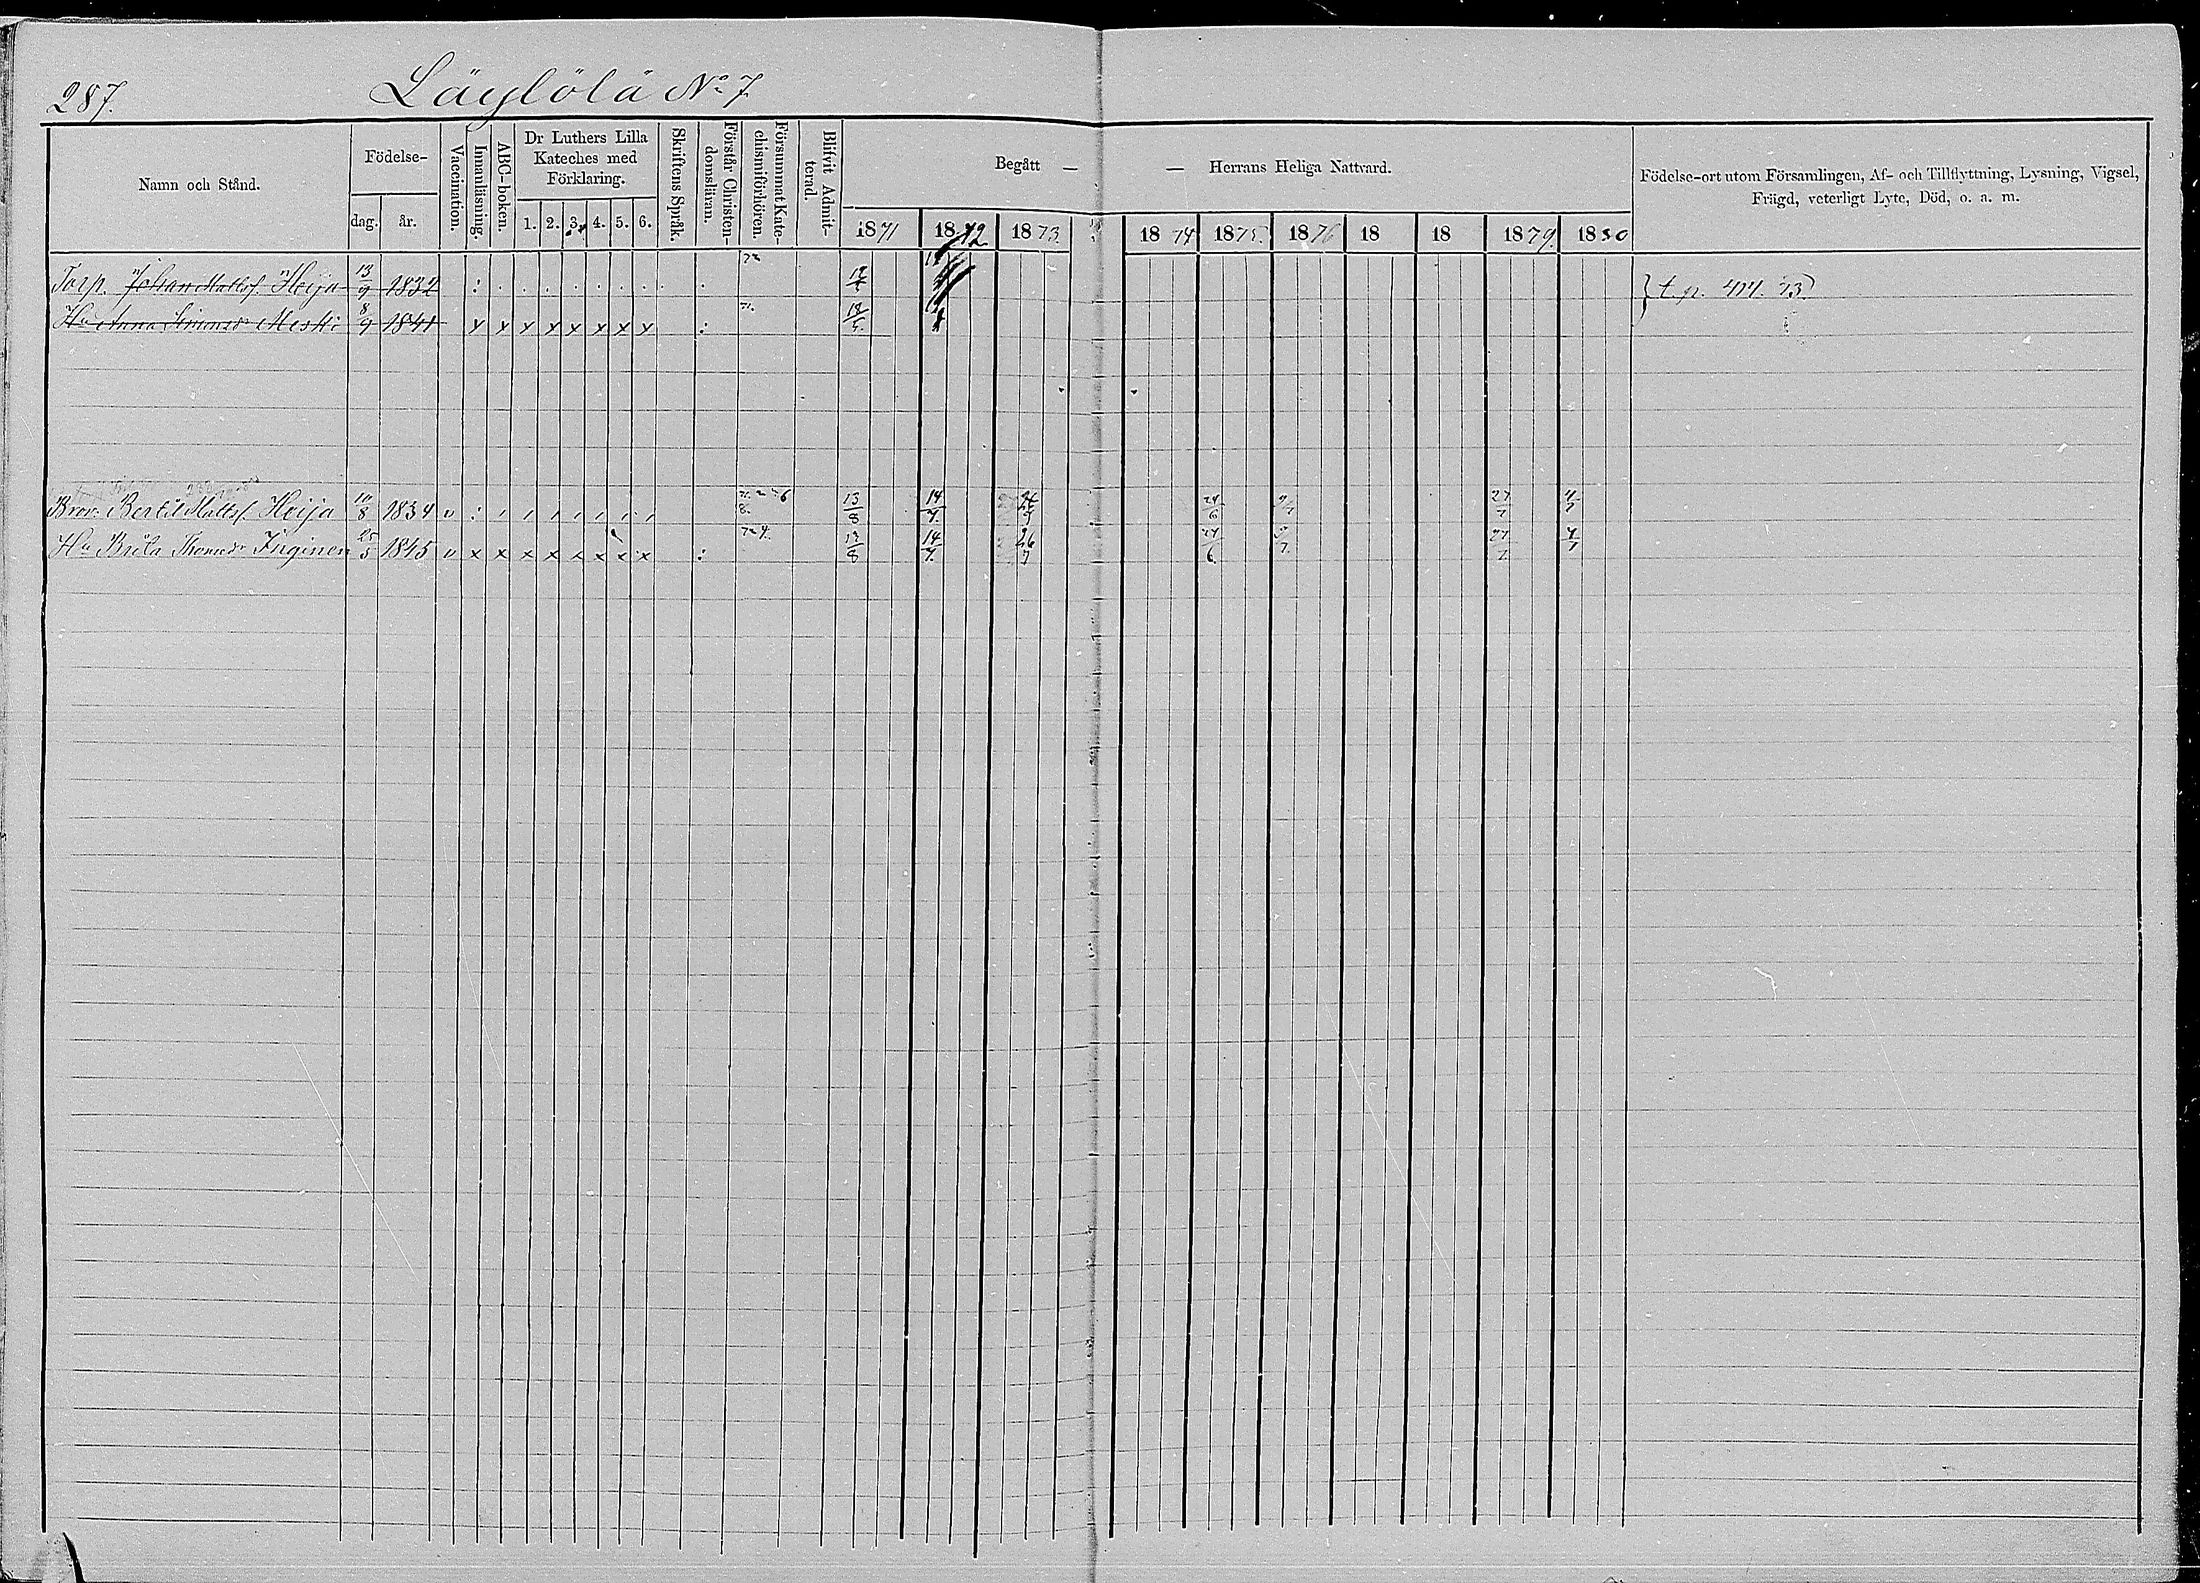 287.
Läylölä No 7
Namn och Stånd.
Födelse-
dag.
år.
Vaccination.
Innanläsning.
ABC-boken.
Dr Luthers Lilla
Kateches med
Förklaring.
1. 2. 3. 4. 5. 6.
Skriftens Språk.
Förstår Christen-
domsläran.
Försummat Kate-
chismiförhören.
Blifvit Admit-
terad.
Begått —
— Herrans Heliga Nattvard.
1871 1872 1873 1874 1875 1876 18 18 1879 1880
Födelse-ort utom Församlingen, Af- och Tillflyttning, Lysning, Vigsel,
Frägd, veterligt Lyte, Död, o. a. m.
Torp. Johan Mattsf. Heija 13/9 1832 : . . . . . . . . . 72 } t. p. 414. 73
Hu Anna Simonsdr Meski 8/9 1841 x x x x x x x x : 71.
Brov. Bertil Mattsf. Heija 10/8 1834 v : 13/8 14/7 24/6 27/7
Hu Brita Thomasdr Inginen 25/5 1845 v x x x x x x x x : 13/8 14/7 26/7 24/6 27/7